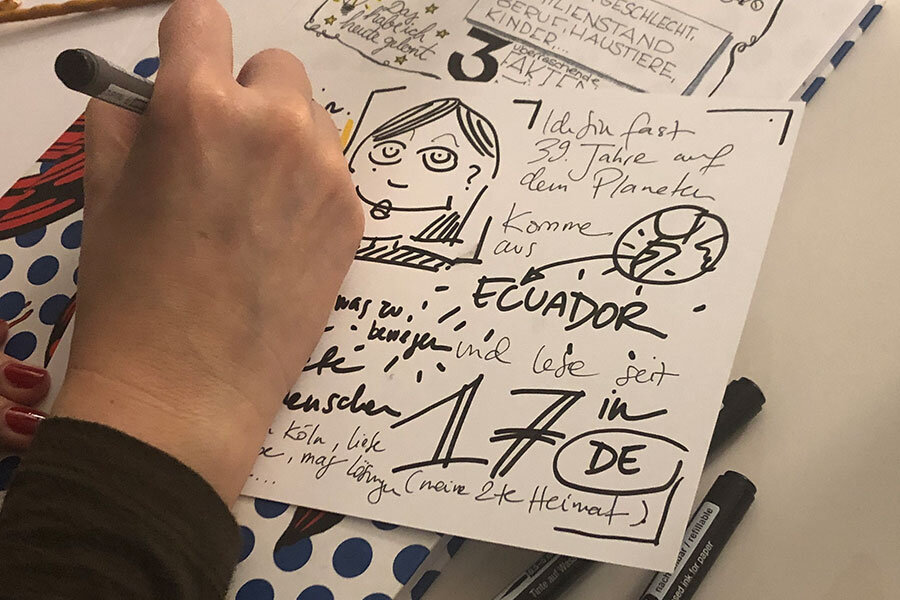 Das
habe ich
heute gelernt
GESCHLECHT,
FAMILIENSTAND
BERUF, HAUSTIERE,
KINDER...
3
überraschende
FAKTEN
Ich bin fast
39. Jahre auf
dem Planeten
Komme
aus
ECUADOR
und lebe seit
17 in
DE
(meine 2te Heimat)
was zu
bewegen
enschen
Köln, liebe
mag
....
nachfüllbar / refillable
based ink for paper
Tinte auf Wasser